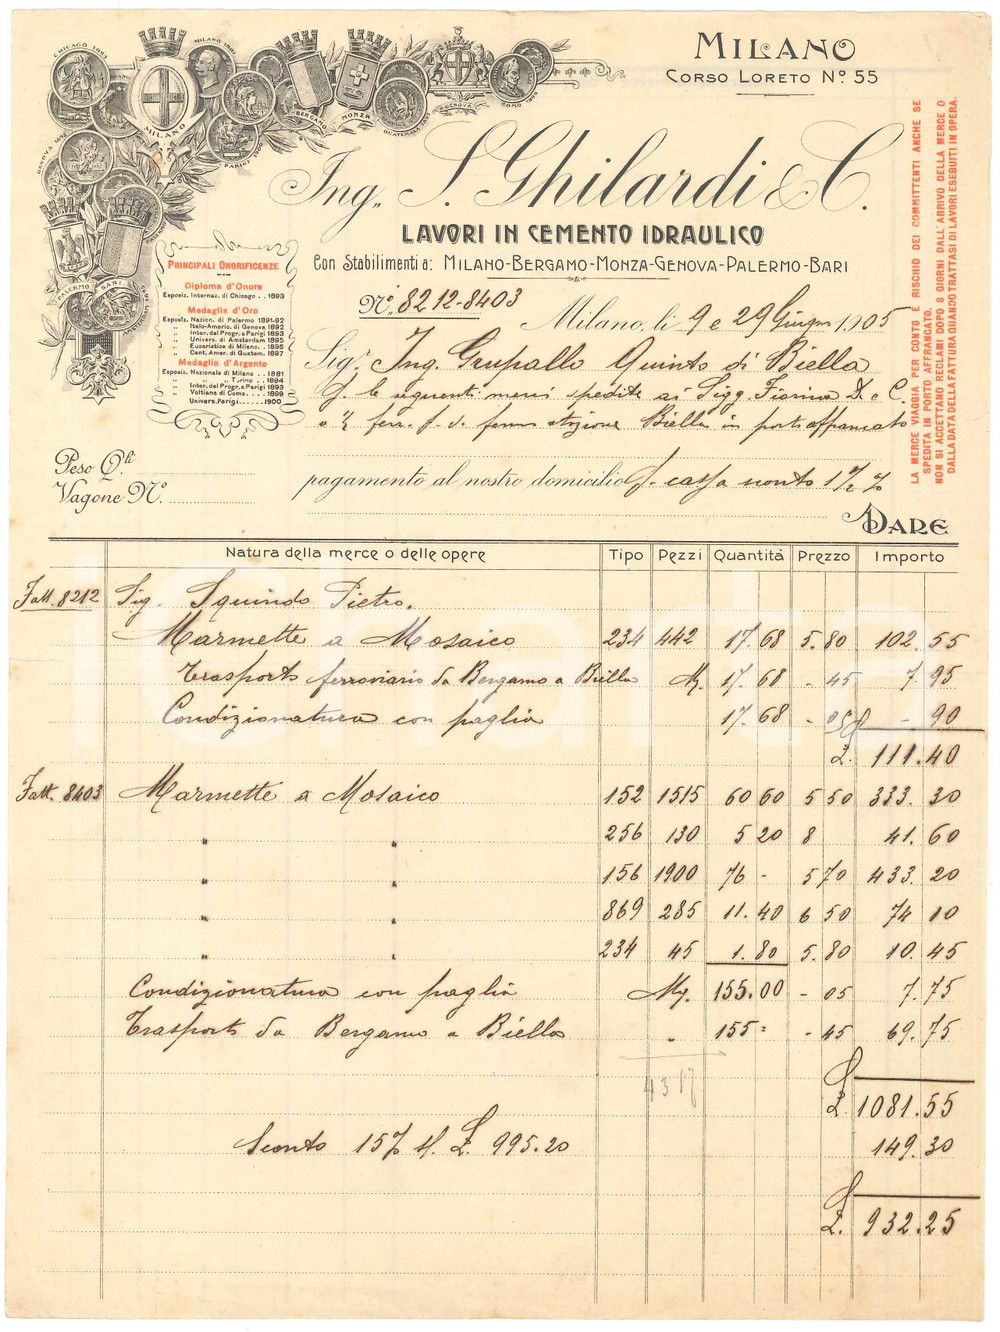 CHICAGO 1891
MILANO 1881
MILANO
BERGAMO
MONZA
GENOVA
COMO 1899
PARIGI 1900
PALERMO
BARI
MILANO
CORSO LORETO Nº 55
Ing. S. Ghilardi & C.
LAVORI IN CEMENTO IDRAULICO
Con Stabilimenti a: MILANO-BERGAMO-MONZA-GENOVA-PALERMO-BARI
PRINCIPALI ONORIFICENZE
Diploma d'Onore
Esposiz. Internaz. di Chicago . . 1893
Medaglia d'Oro
Esposiz. Nazion. di Palermo 1891-92
„ Italo-Americ. di Genova 1892
„ Inter. del Progr. a Parigi 1893
„ Univers. di Amsterdam 1895
„ Eucaristica di Milano . . 1895
„ Cent. Amer. di Guatem. 1897
Medaglia d'Argento
Esposiz. Nazionale di Milano . . 1881
„ „ Torino . . 1884
„ Inter. del Progr. a Parigi 1893
„ Voltiana di Como . . . 1899
„ Univers. Parigi . . . . 1900
LA MERCE VIAGGIA PER CONTO E RISCHIO DEI COMMITTENTI ANCHE SE
SPEDITA IN PORTO AFFRANCATO.
NON SI ACCETTANO RECLAMI DOPO 8 GIORNI DALL'ARRIVO DELLA MERCE O
DALLA DATA DELLA FATTURA QUANDO TRATTASI DI LAVORI ESEGUITI IN OPERA.
Nº 8212-8403
Milano, li 9 e 29 Giugno 1905
Sigr. Ing. Quinto di Biella
le seguenti merci spedite ai Sigg. Fiorina D. e C.
ferr. p. v. fermo stazione Biella in porto affrancato
Peso Q.li
Vagone Nº
pagamento al nostro domicilio p. cassa sconto 1½ %
DARE
Natura della merce o delle opere Tipo Pezzi Quantità Prezzo Importo
Fatt. 8212 Sig. Squindo Pietro.
Marmette a Mosaico 234 442 17.68 5.80 102.55
Trasporto ferroviario da Bergamo a Biella Mq. 17.68 - 45 7.95
Condizionatura con paglia 17.68 - 05 - 90
£. 111.40
Fatt. 8403 Marmette a Mosaico 152 1515 60 60 5 50 333.30
" " 256 130 5 20 8 41.60
" " 156 1900 76 - 5 70 433.20
" " 869 285 11.40 6 50 74 10
" " 234 45 1.80 5.80 10.45
Condizionatura con paglia Mq. 155.00 - 05 7.75
Trasporto da Bergamo a Biella " 155 = - 45 69.75
4317
£. 1081.55
Sconto 15% s/ £. 995.20 149.30
£. 932.25